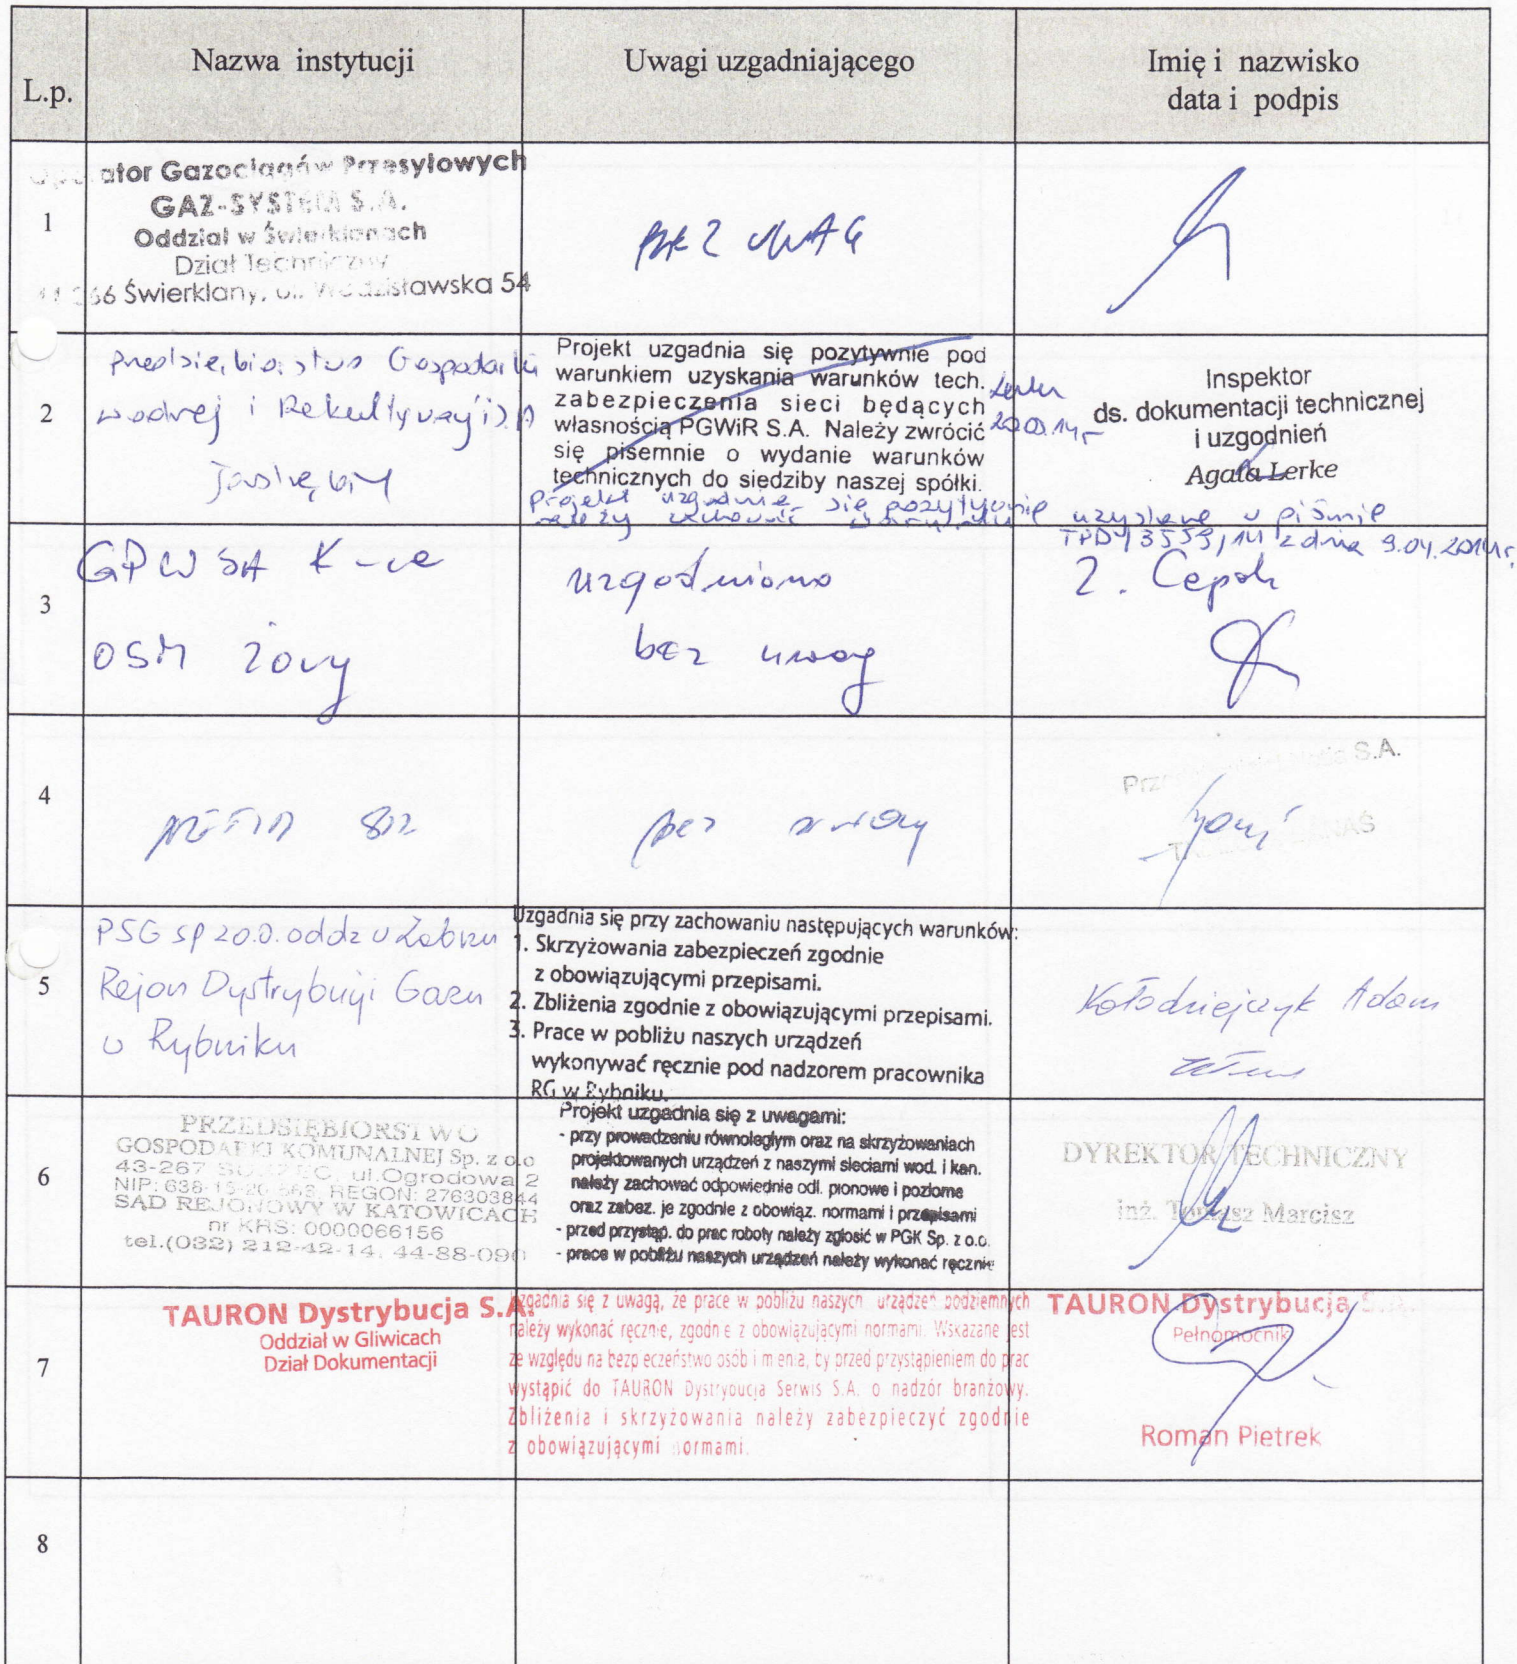 L.p.
Nazwa instytucji
Uwagi uzgadniającego
Imię i nazwisko
data i podpis
1
ator Gazociągów Przesyłowych
GAZ-SYSTEM S.A.
Oddział w Świerklanach
Dział Techniczny
66 Świerklany, ul. Wodzisławska 54
BEZ UWAG
2
Przedsiębiorstwo Gospodarki
Wodnej i Rekultywacji S.A
Jastrzębiu
Projekt uzgadnia się pozytywnie pod
warunkiem uzyskania warunków tech.
zabezpieczenia sieci będących
własnością PGWiR S.A. Należy zwrócić
się pisemnie o wydanie warunków
technicznych do siedziby naszej spółki.
Lerke
Projekt uzgadnia się pozytywnie
należy zachować warunki uzyskane w piśmie
z dnia 9.04.2014r.
Inspektor
ds. dokumentacji technicznej
i uzgodnień
Agata Lerke
3
GPW SA K-ce
OSM Żory
uzgodniono
bez uwag
Z. Cepok
4
NETIA SA
bez uwag
S.A.
5
PSG sp z o.o. oddz w Zabrzu
Rejon Dystrybucji Gazu
w Rybniku
Uzgadnia się przy zachowaniu następujących warunków:
1. Skrzyżowania zabezpieczeń zgodnie
z obowiązującymi przepisami.
2. Zbliżenia zgodnie z obowiązującymi przepisami.
3. Prace w pobliżu naszych urządzeń
wykonywać ręcznie pod nadzorem pracownika
RG w Rybniku.
Kołodziejczyk Adam
6
PRZEDSIĘBIORSTWO
GOSPODARKI KOMUNALNEJ Sp. z o.o
43-267 SUSZEC, ul.Ogrodowa 2
REGON: 276303844
SĄD REJONOWY W KATOWICACH
nr KRS: 0000066156
tel.(032) 212-42-14, 44-88-090
Projekt uzgadnia się z uwagami:
- przy prowadzeniu równoległym oraz na skrzyżowaniach
projektowanych urządzeń z naszymi sieciami wod. i kan.
należy zachować odpowiednie odl. pionowe i poziome
oraz zabez. je zgodnie z obowiąz. normami i przepisami
- przed przystąp. do prac roboty należy zgłosić w PGK Sp. z o.o.
- prace w pobliżu naszych urządzeń należy wykonać ręcznie
DYREKTOR TECHNICZNY
inż. Tomasz Marcisz
7
TAURON Dystrybucja S.A.
Oddział w Gliwicach
Dział Dokumentacji
Uzgadnia się z uwagą, że prace w pobliżu naszych urządzeń podziemnych
należy wykonać ręcznie, zgodnie z obowiązującymi normami. Wskazane jest
ze względu na bezpieczeństwo osób i mienia, by przed przystąpieniem do prac
wystąpić do TAURON Dystrybucja Serwis S.A. o nadzór branżowy.
Zbliżenia i skrzyżowania należy zabezpieczyć zgodnie
z obowiązującymi normami.
TAURON Dystrybucja S.A.
Pełnomocnik
Roman Pietrek
8